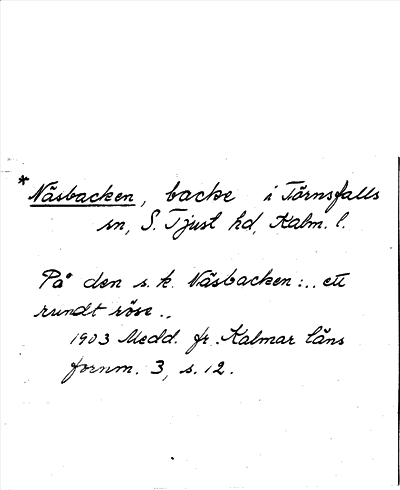 * Näsbacken, backe i Törnsfalls
sn, S. Tjust hd, Kalm. l.
På den s. k. Näsbacken: .. ett
rundt röse ..
1903 Medd. fr. Kalmar läns
fornm. 3, s. 12.